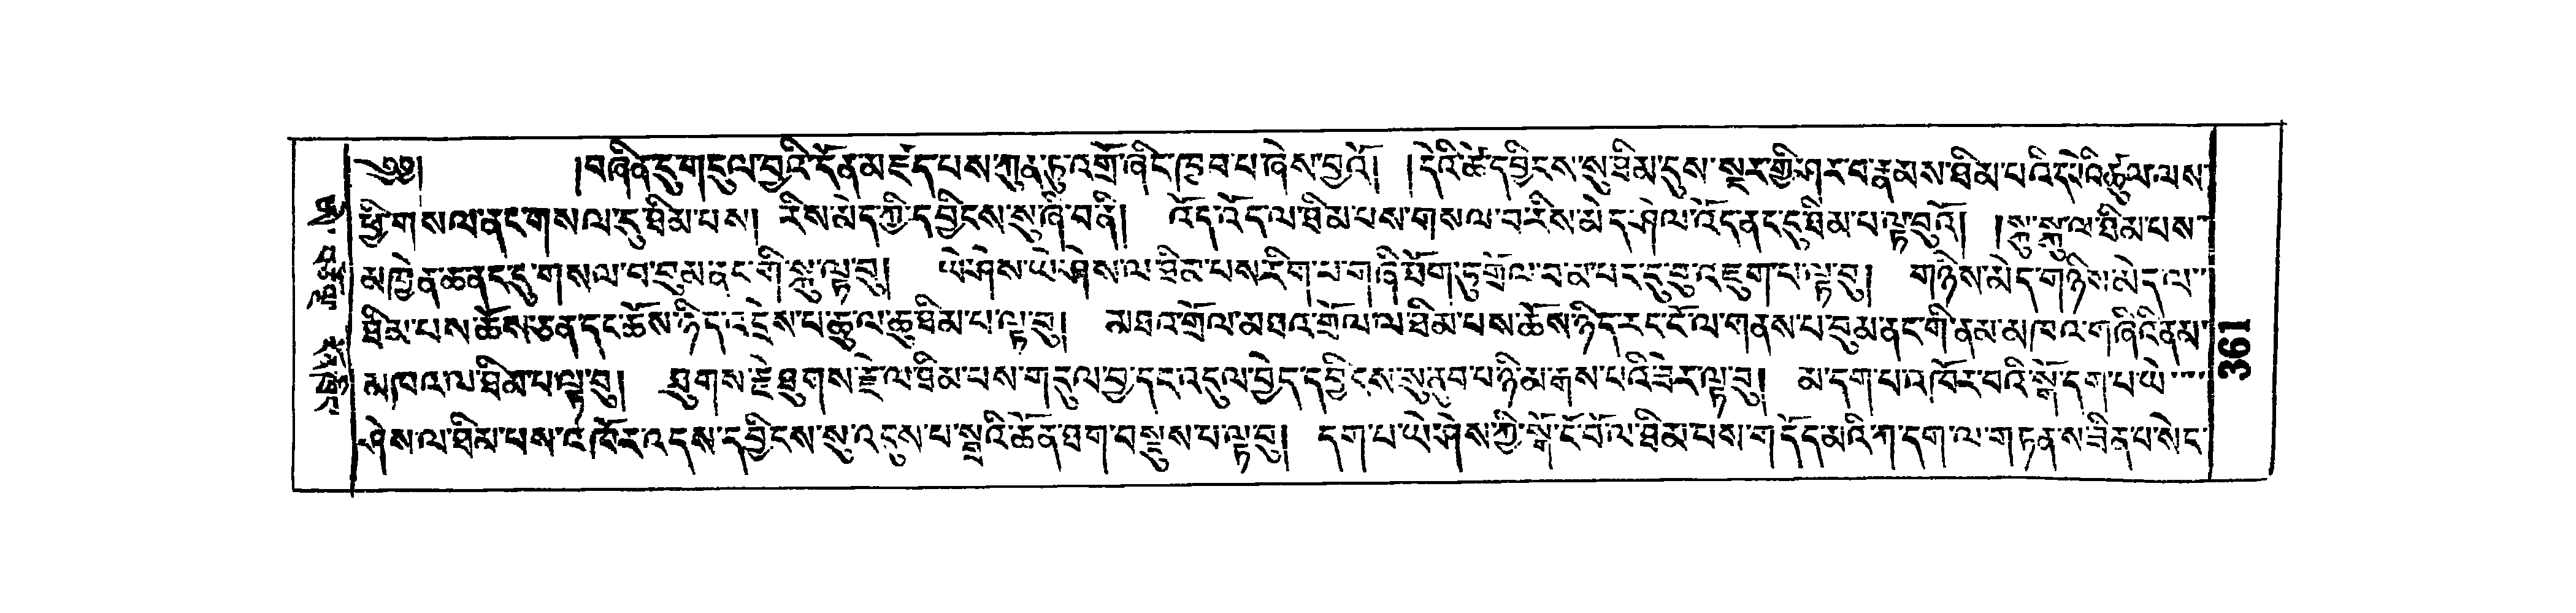 ༄༅། །བཞིན་དུ་གདུལ་བྱའི་དོན་མཛད་པས་ཀུན་ཏུ་འགྲོ་ཞིང་ཁྱབ་པ་ཞེས་བྱའོ། །དེའི་ཚེ་དབྱིངས་སུ་ཐིམ་དུས་སྔར་གྱི་ཤར་བ་རྣམས་ཐིམ་པའི་དཔེའི་ཚུལ་ལས་
ཕྱི་གསལ་ནང་གསལ་དུ་ཐིམ་པས། རིས་མེད་ཀྱི་དབྱིངས་སུ་ཞི་བནི། འོད་འོད་ལ་ཐིམ་པས་གསལ་བ་རིས་མེད་ཤེལ་འོད་ནང་དུ་ཐིམ་པ་ལྟ་བུའོ། །སྐུ་སྐུ་ལ་ཐིམ་པས་
མཁྱེན་ཆ་ནང་དུ་གསལ་བ་བུམ་ནང་གི་སྐུ་ལྟ་བུ། ཡེ་ཤེས་ཡེ་ཤེས་ལ་ཐིམ་པས་རིག་པ་གཞི་ཐོག་ཏུ་གྲོལ་བ་མ་པང་དུ་བུ་འཇུག་པ་ལྟ་བུ། གཉིས་མེད་གཉིས་མེད་ལ་
ཐིམ་པས་ཆོས་ཅན་དང་ཆོས་ཉིད་འདྲེས་པ་ཆུ་ལ་ཆུ་ཐིམ་པ་ལྟ་བུ། མཐའ་གྲོལ་མཐའ་གྲོལ་ལ་ཐིམ་པས་ཆོས་ཉིད་རང་ངོ་ལ་གནས་པ་བུམ་ནང་གི་ནམ་མཁའ་གཞིའི་ནམ་
མཁའ་ལ་ཐིམ་པ་ལྟ་བུ། ཐུགས་རྗེ་ཐུགས་རྗེ་ལ་ཐིམ་པས་གདུལ་བྱ་དང་འདུལ་བྱེད་དབྱིངས་སུ་ནུབ་པ་ཉི་མ་རྒས་པའི་ཟེར་ལྟ་བུ། མ་དག་པ་འཁོར་བའི་སྒོ་དག་པ་ཡེ་
ཤེས་ལ་ཐིམ་པས་འཁོར་འདས་དབྱིངས་སུ་འདུས་པ་སྒྲའི་ཆོན་ཐག་བསྡུས་པ་ལྟ་བུ། དག་པ་ཡེ་ཤེས་ཀྱི་སྒོ་ངོ་བོ་ལ་ཐིམ་པས་གདོད་མའི་ཀ་དག་ལ་གཏན་ས་ཟིན་པ་སེང་